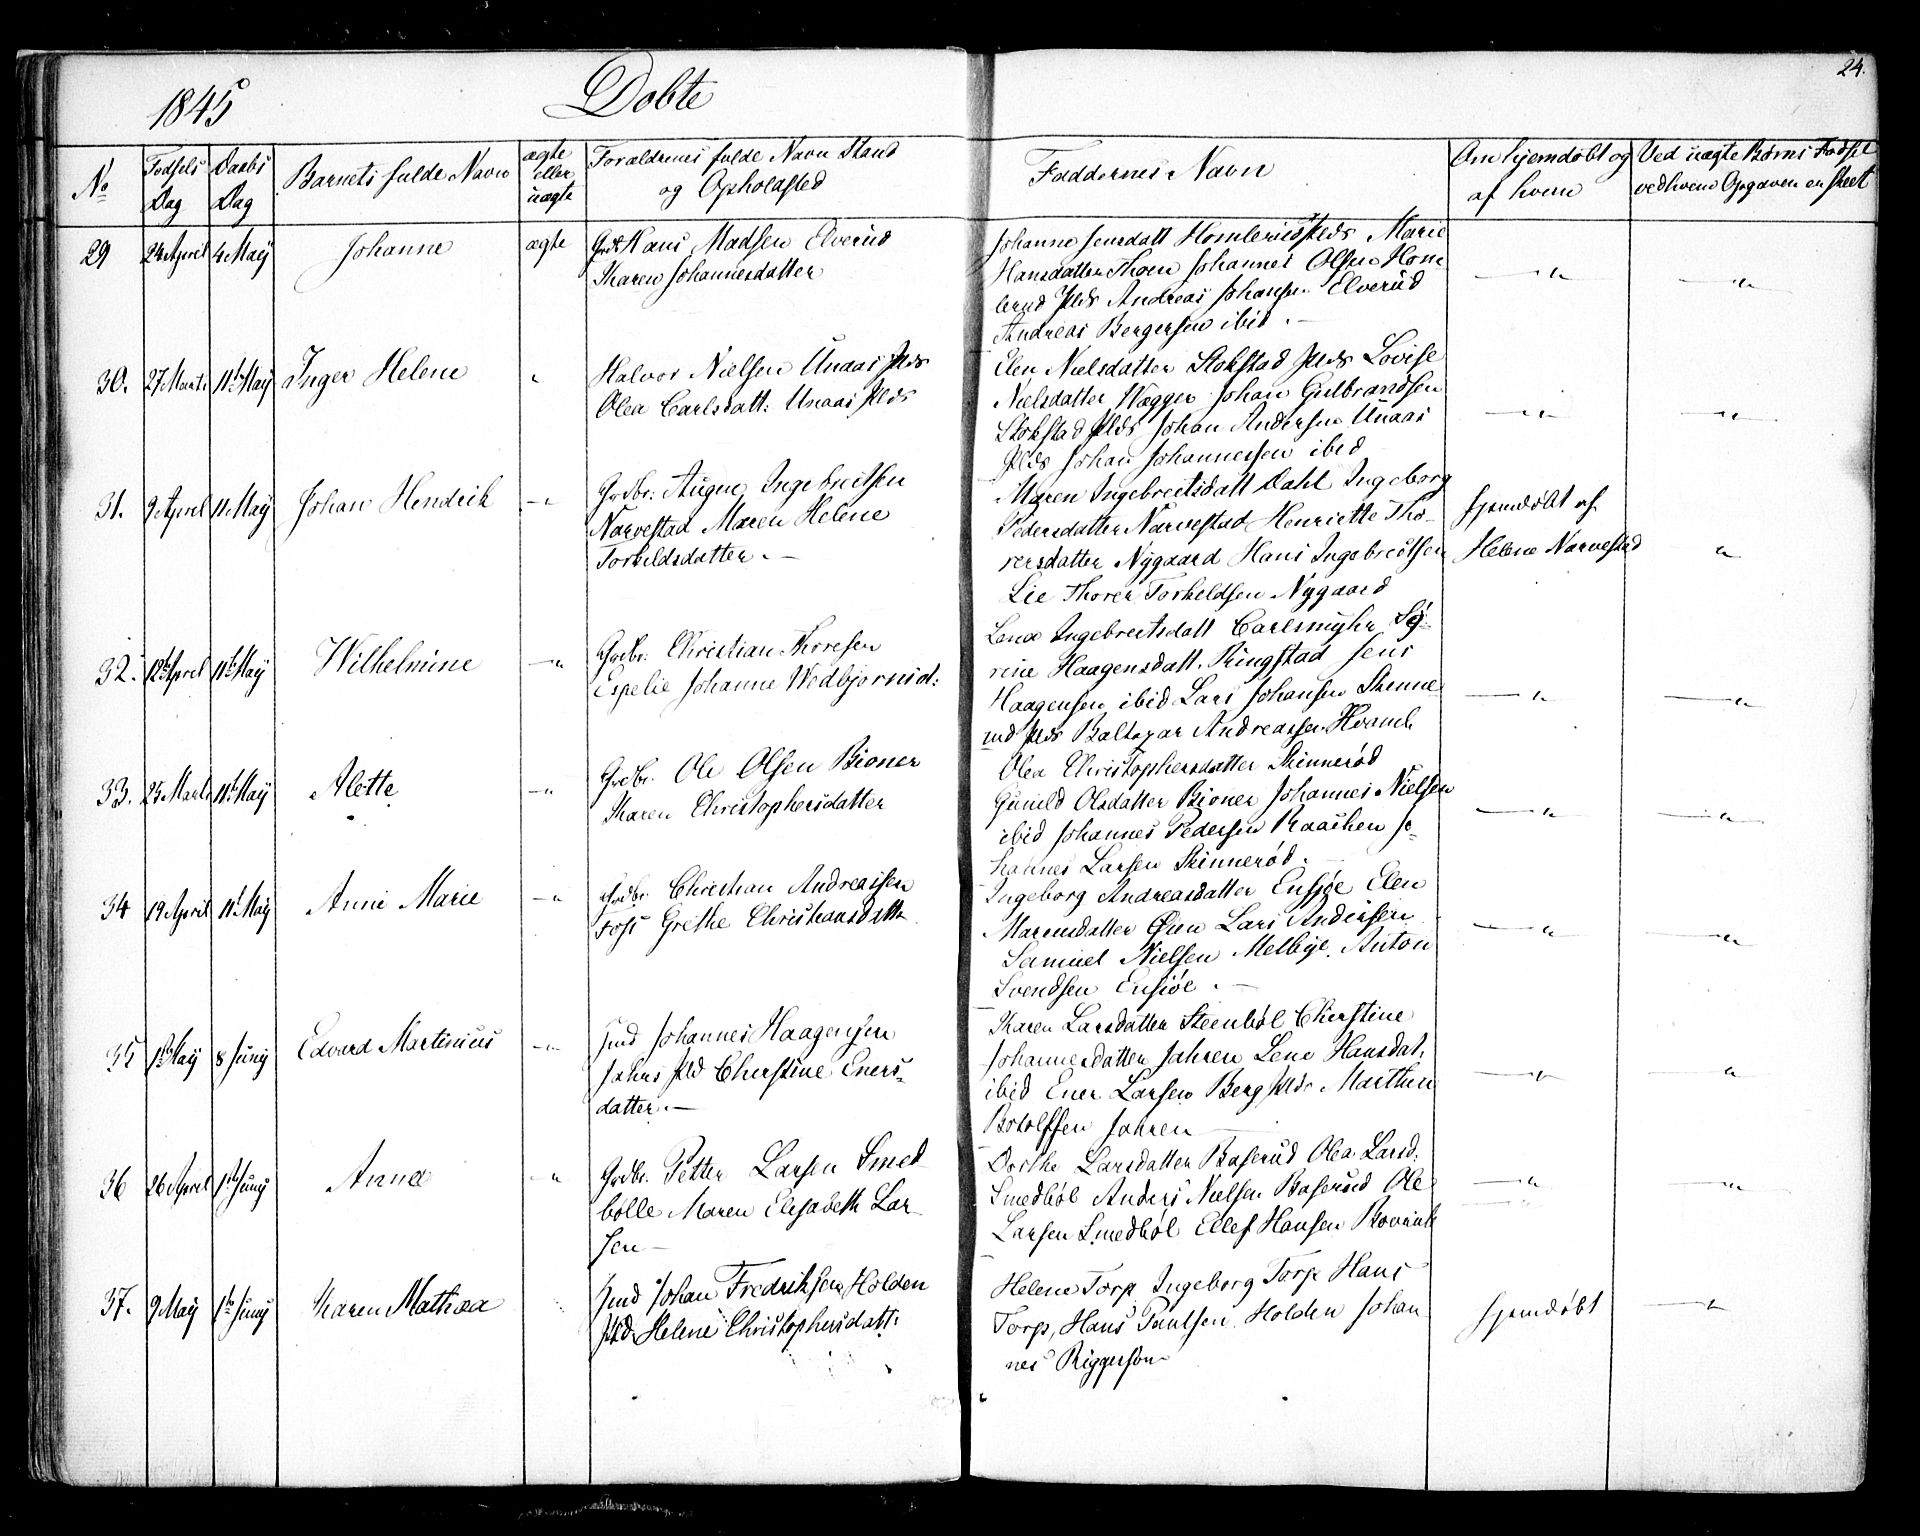 24.
1845 Døbte
No Fødsels Dag Daabs Dag Barnets fulde Navn ægte eller uægte Forældrenes fulde Navn Stand og Opholdsted Faddernes Navn Om hjemdøbt og af hvem Ved uægte Børns Fødsel ved hvem Opgaven er skeet
29 24 April 4 May Johanne ægte Hans Madsen Elverud
Karen Johannesdatter
Johanne Jensdatt Homlerud Plds Marie
Hansdatter Thoen Johannes Olsen Hom
lerud Plds Andreas Johansen Elverud
Andreas Bergersen ibid. —
30. 27 Marts 11te May Inger Helene " Halvor Nielsen Unaas Plds
Olea Carlsdatt: Unaas Plds
Elen Nielsdatter Stokstad Plds Lovise
Nielsdatter Wægger Johan Gulbrandsen
Stokstad Plds Johan Andersen Unaas
Plds Johan Johannessen ibid
31. 9 April 11 May Johan Hendrik —" Grdbr: Augen Ingebreitsen
Narvestad Maren Helene
Torkildsdatter. —
Maren Ingebreitsdatt Dahl Ingeborg
Pedersdatter Narvestad Henriette Tho-
rersdatter Nygaard Hans Ingebreitsen
Lie Thorer Torkeldsen Nygaard
hjemdøbt af
Helene Narvestad "
32. 12te April 11te May Wilhelmine —" Grdbr. Christian Thoresen
Espelie Johanne Wedbjørnsd:
Lena Ingebreitsdatt Carlsmyhr Sø-
rine Haagensdatt. Ringstad Jens
Haagensen ibid Lars Johansen Skenne
rud Plds Baltazar Andreassen
33. 25 Marts 11te May Alette —" Grdbr. Ole Olsen Bioner
Karen Christophersdatter
Olea Christophersdatter Skinnerød
Gunild Olsdatter Bioner Johannes Nielsen
ibid Johannes Pedersen Raachen Jo-
hannes Larsen Skinnerød.
34 19 April 11te May Anne Marie —" Grdbr. Christian Andreassen
Foss Grethe Christiansdatter
Ingeborg Andreasdatter Ensjøe Elen
Marensdatter Øien Lars Andersen
Samuel Nielsen Melbye. Anton
Svendsen Ensiøe. —
35 1te May 8 Juny Edvard Martinius —" Inds Johannes Haagensen
Jahrs Pld Cherstine Eners-
datter. —
Karen Larsdatter Steenbøl Cherstine
Johannesdatter Jahren Lene Hansdat.
ibid Ener Larsen Berg Plds Marthin
Botolfsen Jahren
36 26 April 1te Juny Anna —" Grdbr. Petter Larsen Smed
bølle Maren Elisabeth Lar
sen —
Dorthe Larsdatter Baserud Olea Larsd:
Smedbøl Anders Nielsen Baserud Ole
Larsen Smedbøl Ellef Hansen
37. 9 May 1te Juny Karen Mathea Inds Johan Fredriksen Holden
Pld Helene Christophersdatt:
Helene Torp Ingeborg Torp Hans
Torp, Hans Paulsen Holden Johan
nes Biggerson
hjemdøbt